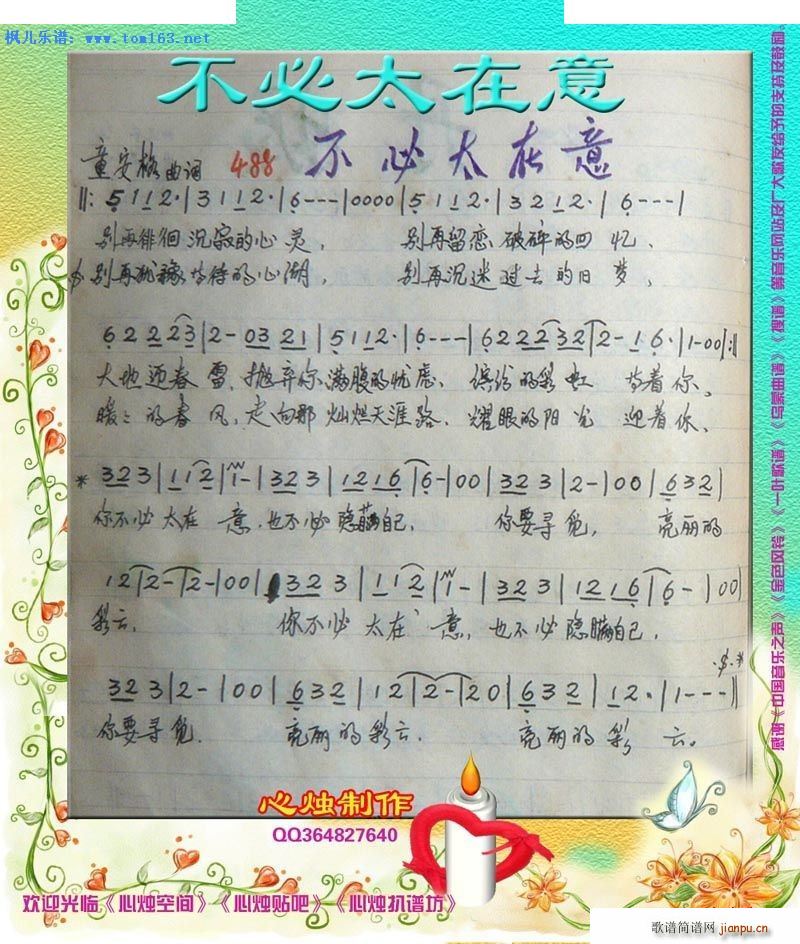 枫儿乐谱：www.tom163.net
不必太在意
童安格曲词 488 不必太在意
‖: 5 1 1 2· | 3 1 1 2· | 6 - - - | 0000 | 5 1 1 2· | 3 2 1 2· | 6 - - - |
别再徘徊沉寂的心灵， 别再留恋破碎的回忆、
别再犹豫等待的心湖， 别再沉迷过去的旧梦，
6 2 2 2 2 3 | 2 - 0 3 2 1 | 5 1 1 2· | 6 - - - | 6 2 2 2 3 2 | 2 - 1 6· | 1 - 0 0 :‖
大地迎春雷、抛弃你满腹的忧虑、缤纷的彩虹 等着你、
暖暖的春风，走向那灿烂天涯路、耀眼的阳光 迎着你、
* 3 2 3 | 1 1 2 | 1 - | 3 2 3 | 1 2 1 6 | 6 - | 0 0 | 3 2 3 | 2 - | 0 0 | 6 3 2 |
你不必太在意，也不必隐瞒自己， 你要寻觅， 亮丽的
1 2 | 2 - | 2 - | 0 0 | 3 2 3 | 1 1 2 | 1 - | 3 2 3 | 1 2 1 6 | 6 - | 0 0 |
彩云、 你不必太在意，也不必隐瞒自己，
3 2 3 | 2 - | 0 0 | 6 3 2 | 1 2 | 2 - | 2 0 | 6 3 2 | 1 2· | 1 - - - ‖
你要寻觅、 亮丽的彩云、 亮丽的彩云。
心烛制作
QQ364827640
欢迎光临《心烛空间》《心烛贴吧》《心烛扒谱坊》
感谢《中国音乐之声》《金色风铃》《一叶歌谱》《乌蒙曲谱》《搜谱》等音乐网站及广大歌友给予的支持及鼓励
歌谱简谱网 jianpu.cn